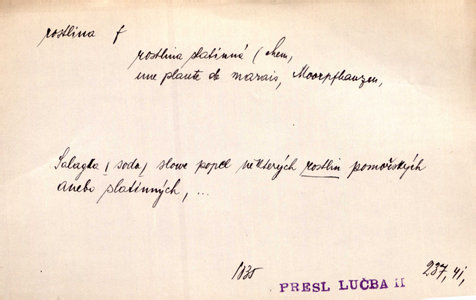 rostlina f
rostlina slatinná (chem,
une plante de marais, Moorpflanzen,
Salajka / soda / slowe popel některých rostlin pomořských
anebo slatinných, ...
1835 PRESL LUČBA II 237, 41,